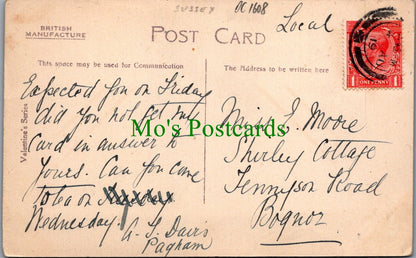 SUSSEX
DC1608
Local
BRITISH
MANUFACTURE
POST CARD
This space may be used for Communication
The Address to be written here
Valentine's Series
ONE PENNY
Expected you on Friday
did you not get my
card in answer to
yours. Can you come
to tea on
Wednesday.
A. S. Davis
Pagham
Miss L. Moore
Shirley Cottage
Tennyson Road
Bognor
Mo's Postcards